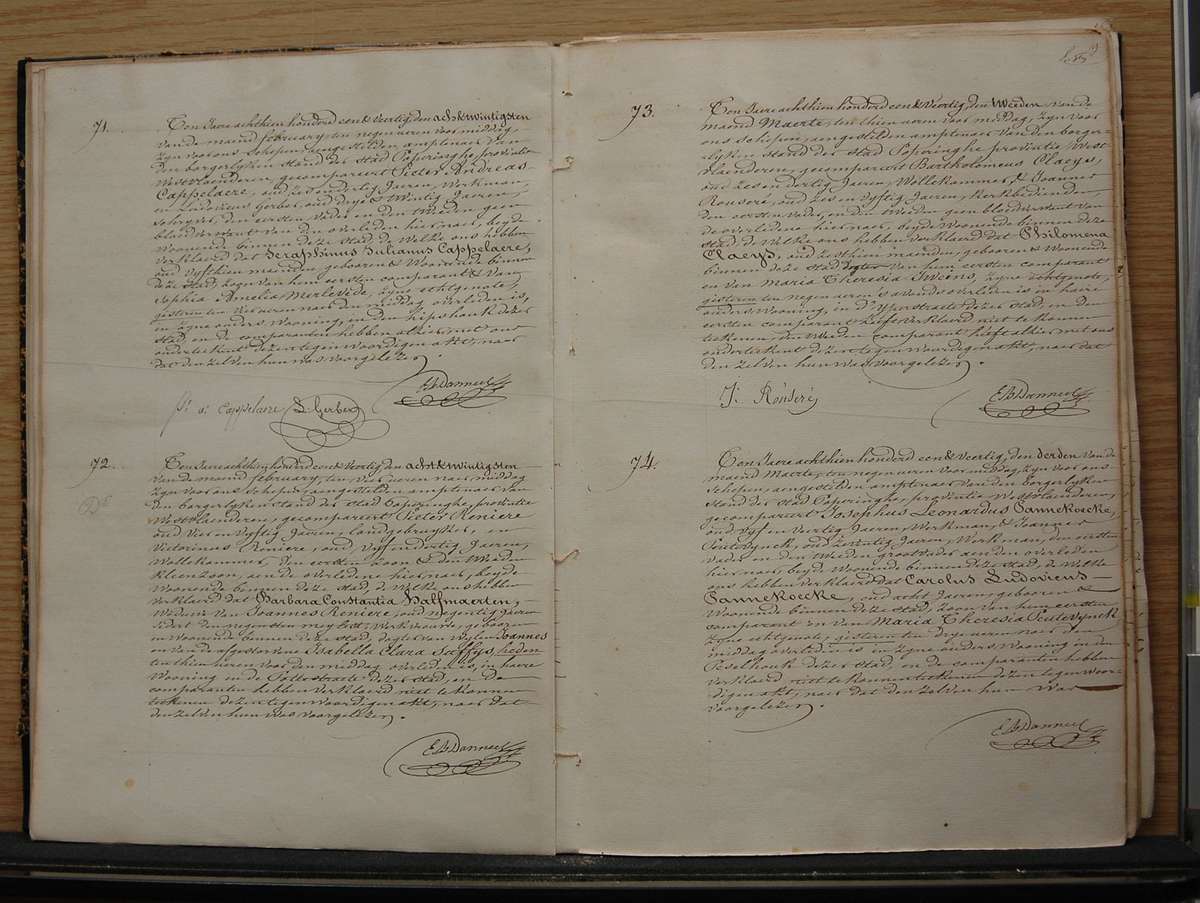 71.
Ten Jaere achthien honderd een & veertig, den acht & twintigsten
van de maend february, ten negen ueren voor middag,
zyn voor ons Schepen, aengestelden amptenaer van
den borgerlyken stand der stad Poperinghe, provintie
Westvlaenderen, gecompareert Pieter Andreas
Cappelaere, oud zes en dertig Jaeren, Werkman
en Ludovicus Gerber, oud drye & twintig Jaeren,
Schryver, den eersten, vader en den tweeden geen
bloedverwant van den overleden hier naer, beyde
woonende binnen deze stad, de welke ons hebben
verklaerd dat Seraphinus Julianus Cappelaere,
oud vyfthien maenden, geboren & woonende binnen
deze stad, zoon van hem eersten comparant & van
Sophia Amelia Merlevede, zyne echtgenote,
gisteren ten vier ueren naer den middag overleden is,
in zyne ouders wooning, in den Gipshouk dezer
stad, en de comparanten hebben alhier met ons
onderteekent dezen tegenwoordigen akt, naer
dat den zelven hun was voorgelezen.
EBDanneel
P: a: Cappelaere L. Gerber
72.
Ten Jaere achthien honderd een & veertig, den acht & twintigsten
van de maend february, ten vier ueren naer middag
zyn voor ons Schepen, aengestelden amptenaer van
den borgerlyken stand der stad Poperinghe, provintie
Westvlaenderen, gecompareert Pieter Reniere
oud vier en vyftig Jaeren, landgebruyker, en
Victorinus Reniere, oud vyf en dertig Jaeren,
Wollekammer, den eersten zoon & den tweeden
kleenzoon, aen de overledene hier naer, beyde
woonende binnen deze stad, de welke ons hebben
verklaerd dat Barbara Constantia Halfmaerten,
Weduwe van Joannes Reniere, oud negentig Jaeren
sedert den negensten mey lest, Werkvrouwe, geboren
en woonende binnen deze stad, dogter van wylen Joannes
en van de afgestorvene Isabella Clara Saffys, heden
ten thien ueren voor den middag overleden is, in haere
wooning in de Pottestraete dezer stad, en de
comparanten hebben verklaerd niet te konnen
teekenen dezen tegenwoordigen akt, naer dat
den zelven hun was voorgelezen.
EBDanneel
73.
Ten Jaere achthien honderd een & veertig, den tweeden van de
maend Maerte, ten thien ueren voor middag, zyn voor
ons Schepen, aengestelden amptenaer van den borger-
lyken stand der stad Poperinghe, provintie West-
vlaenderen, gecompareert Bartholomeus Claeys,
oud zes en dertig Jaeren, Wollekammer, & Joannes
Rouseré, oud zes en vyftig Jaeren, Kerkbedienden,
den eersten vader, en den tweeden geen bloedverwant van
de overledene hier naer, beyde woonende binnen deze
stad, de welke ons hebben verklaerd dat Philomena
Claeys, oud zesthien maenden, geboren & woonende
binnen deze stad, dogter van hem eersten comparant
en van Maria Theresia Iweins, zyne echtgenote,
gisteren ten negen ueren s'avends overleden is in haere
ouders wooning, in d'Yperstraete dezer stad, en den
eersten comparant heeft verklaerd niet te konnen
teekenen, den tweeden comparant heeft alhier met ons
onderteekent dezen tegenwoordigen akt, naer dat
den zelven hun was voorgelezen.
J: Rouseré
EBDanneel
74.
Ten Jaere achthien honderd een & veertig, den derden van de
maend Maerte, ten negen ueren voor middag, zyn voor ons
Schepen, aengestelden amptenaer van den borgerlyken
stand der stad Poperinghe, provintie Westvlaenderen,
gecompareert Josephus Leonardus Pannekoecke,
oud vyf en veertig Jaeren, Werkman, & Joannes
Peutevynck, oud zeventig Jaeren, Werkman, den eersten
vader en den tweeden grootvader aen den overleden
hier naer, beyde woonende binnen deze stad, de welke
ons hebben verklaerd dat Carolus Ludovicus
Pannekoecke, oud acht Jaeren, geboren &
woonende binnen deze stad, zoon van hem eersten
comparant en van Maria Theresia Peutevynck
zyne echtgenote, gisteren ten drye ueren naer den
middag overleden is in zyne ouders wooning in den
Peselhouk dezer stad, en de comparanten hebben
verklaerd niet te konnen teekenen dezen tegenwoor-
digen akt, naer dat den zelven hun was
voorgelezen.
EBDanneel